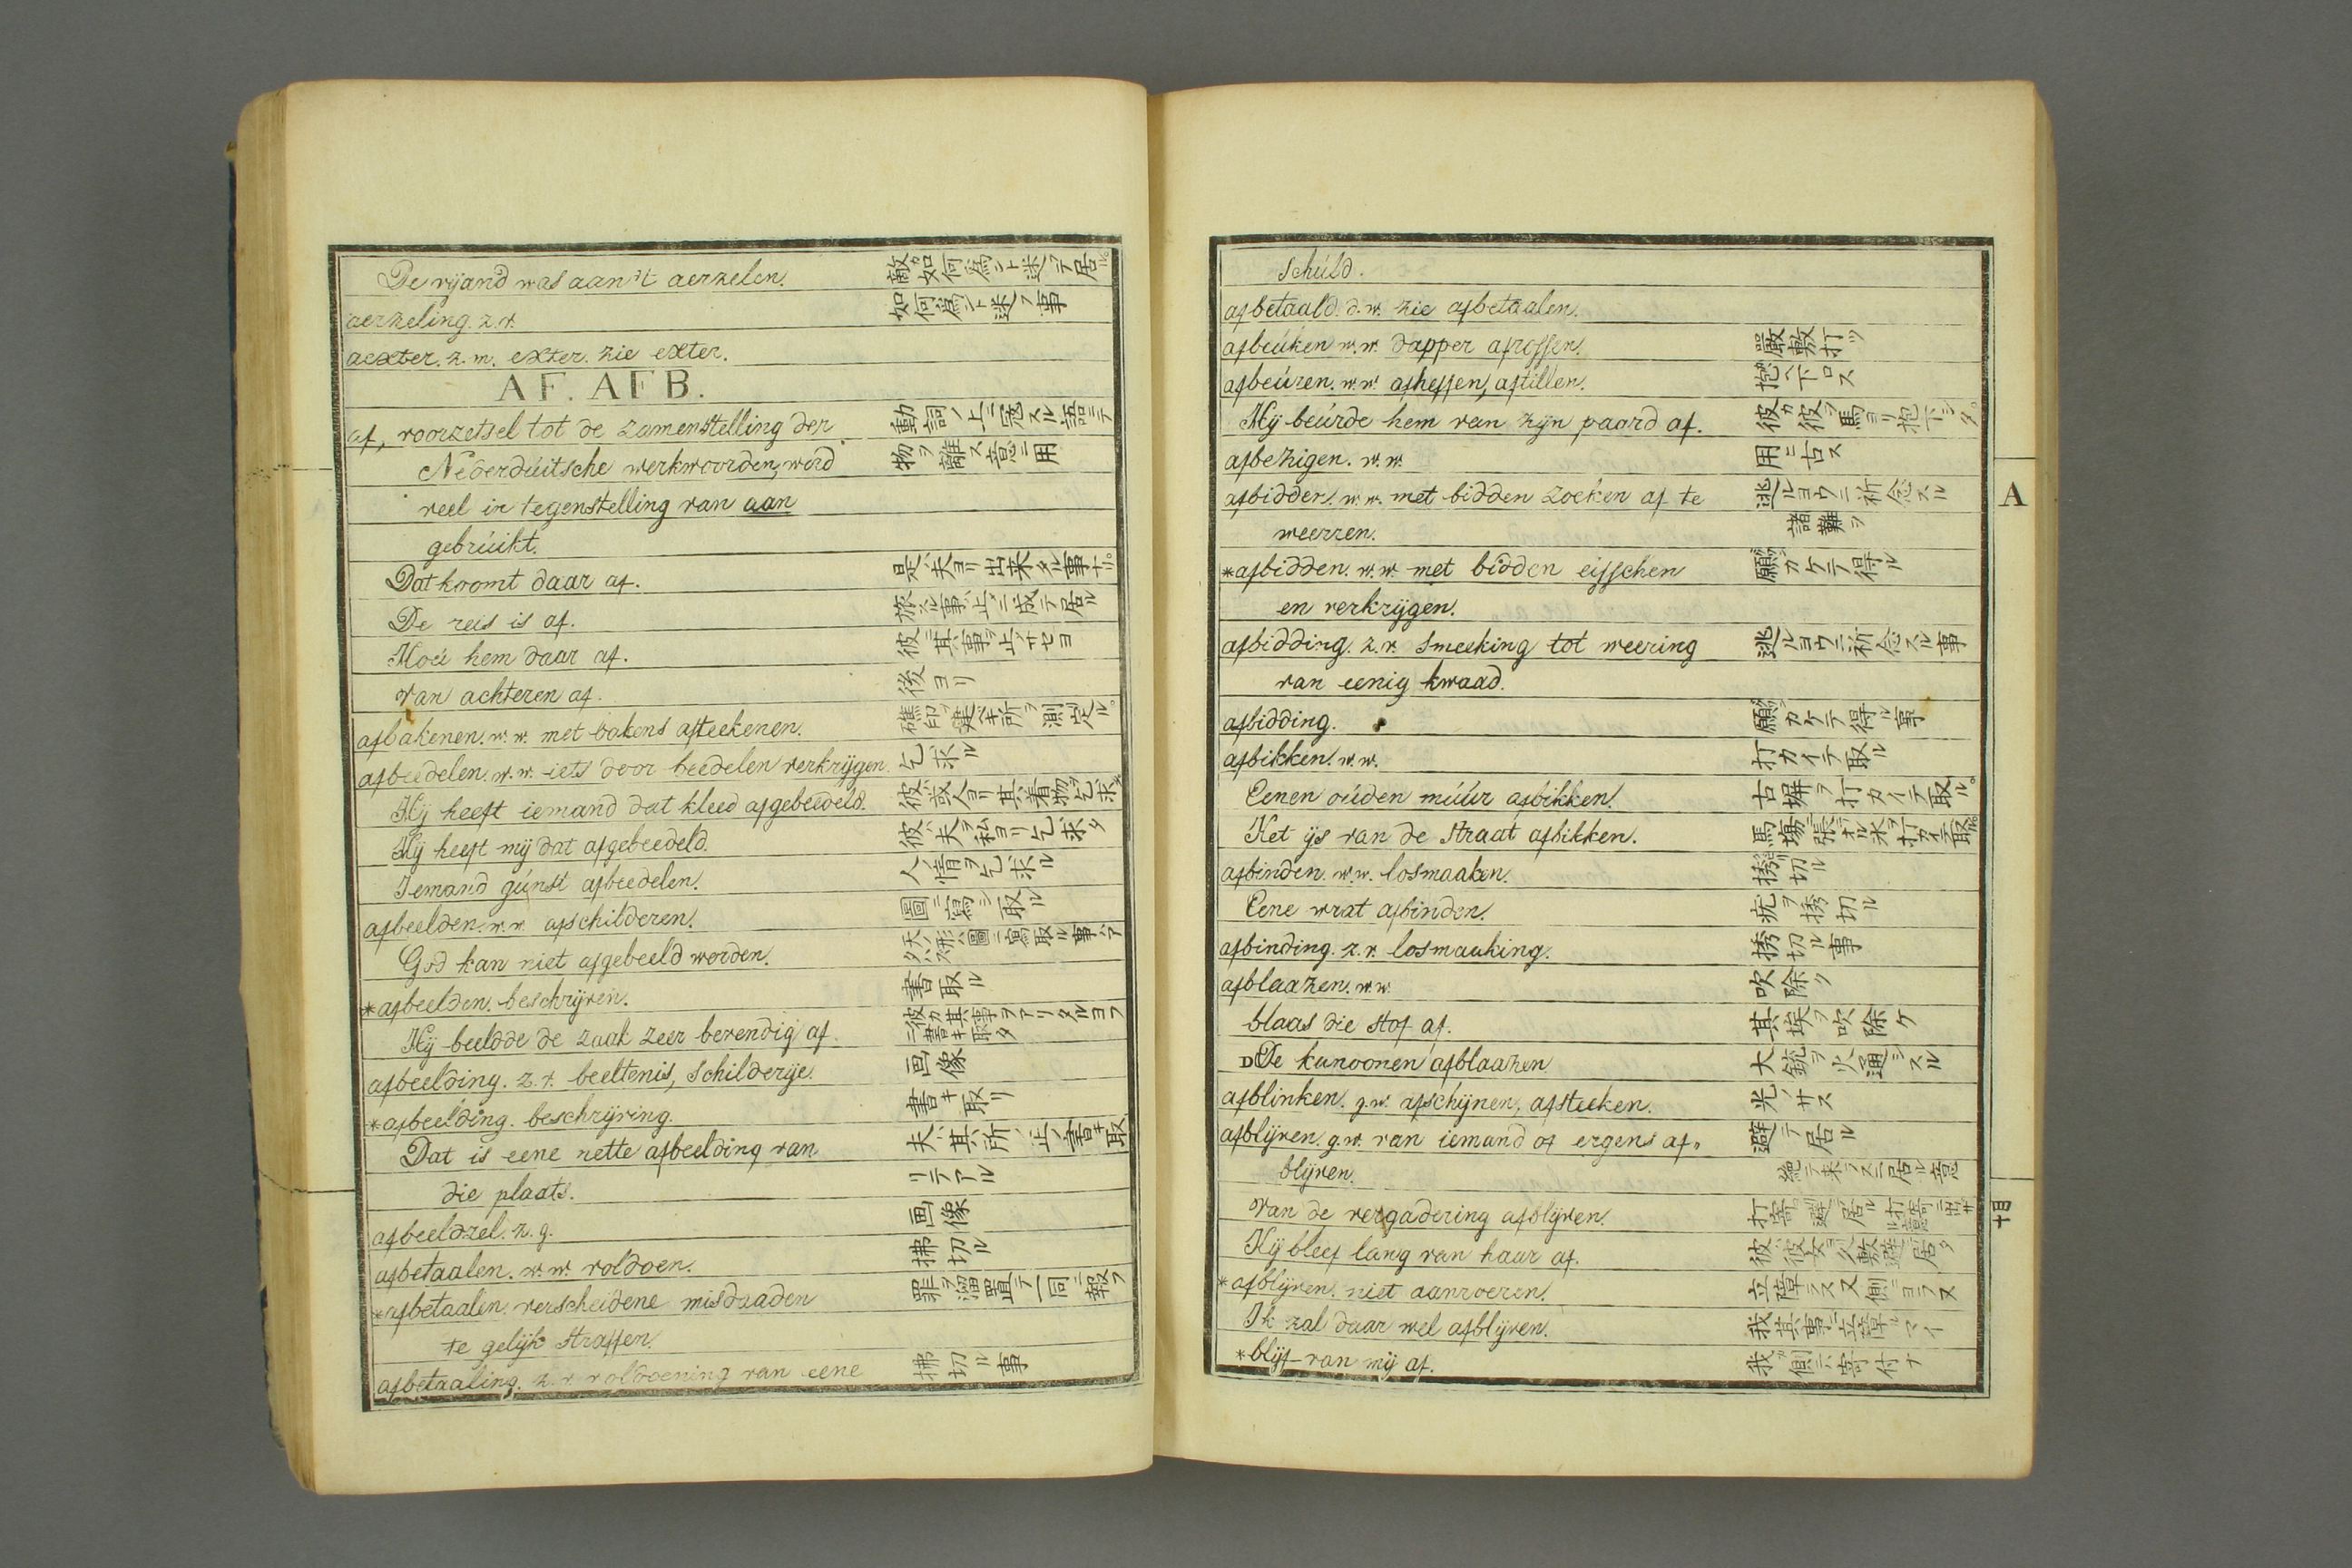 De vyand was aan 't aerzelen. 敵ガ如何為ント迷フテ居ル
aerzeling. z.v. 如何為ント迷フ事
aexter. z.m. exter. zie exter.
AF. AFB.
af, voorzetsel tot de zamenstelling der 動詞ノ上ニ冠スル語ニテ
Nederduitsche werkwoorden, word 物ヲ離ス意ニ用
veel in tegenstelling van aan
gebrúikt.
Dat koomt daar af. 是ハ夫ヨリ出来タル事ナル
De reis is af. 旅スル事ハ止ニ成テ居ル
Hoú hem daar af. 彼ニ其事ヲ止サセヨ
Van achteren af. 後ヨリ
afbakenen. w.w. met bakens afteekenen. 礁印ヲ建ベキ所ヲ測定ル
afbeedelen. w.w. iets door beedelen verkrygen. 乞求ル
Hy heeft iemand dat kleed afgebeedeld. 彼ハ或人ヨリ其着物ヲ乞求タ
Hy heeft mij dat afgebeedeld. 彼ハ夫ヲ私ヨリ乞求タ
Iemand gúnst afbeedelen. 人ノ情ヲ乞求ル
afbeelden. w.w. afschilderen. 圖ニ寫シ取ル
God kan niet afgebeeld worden.
*afbeelden. beschryven. 書取ル
Hy beeldde de zaak zeer bevendig af. 彼ガ其事ヲアリタルヨフニ書キ取タ
afbeelding. z.v. beeltenis, schilderye. 画像
*afbeelding. beschryving. 書キ取リ
Dat is eene nette afbeelding van 夫ハ其所ノ正ノ書キ取
die plaats. リテアル
afbeeldzel. z.g. 画像
afbetaalen. w.w. voldoen. 拂切ル
*afbetaalen. verscheidene misdaaden 罪ヲ溜置テ一同ニ報フ
te gelyk straffen.
afbetaaling. z.v. voldoening van eene 拂切ル事
schúld.
afbetaald. d.w. zie afbetaalen.
afbeúken w.w. dapper afrossen. 嚴敷打ツ
afbeúren. w.w. afheffen, aftillen. 抱ヘ下ロス
Hy beúrde hem van zyn paard af. 彼ガ彼ヲ馬ヨリ抱下シタ
afbezigen. w.w. 用ニ古ス
afbidden. w.w. met bidden zoeken af te 逃ルヨウニ祈念スル
weeren. 諸難ヲ
*afbidden. w.w. met bidden eisschen 願ヲカケテ得ル
en verkrygen.
afbidding. z.v. smeeking tot weering 逃ルヨウニ祈念スル事
van eenig kwaad.
afbidding. 願ヲカケテ得ル事
afbikken. w.w. 打カイテ取ル
Eenen oúden múúr afbikken. 古塀ヲ打カイテ取ル
Het ys van de straat afbikken. 馬場ニ張テオル氷ヲ打カイテ取ル
afbinden. w.w. losmaaken. 切ル
Eene wrat afbinden. 疣ヲ切ル
afbinding. z.v. losmaaking. 切ル事
afblaazen. w.w. 吹除ク
blaas die stof af. 其埃ヲ吹除ケ
D De kanoonen afblaazen 大銃ヲ火通シスル
afblinken. g.w. afschynen, afsteeken. 光ノサス
afblyven. g.w. van iemand of ergens af„ 避テ居ル
blyven. 絶テ来ラズニ居ル意
Van de vergadering afblyven.
Hy bleef lang van haar af. 彼ハ彼女ヨリ久敷避テ居タ
*afblyven. niet aanroeren. 立障ラヌ又側ニヨラヌ
Ik zal daar wel afblyven. 我其事ニ立障ルマイ
*blyf van my af. 我ガ側ニ寄付ナ
A